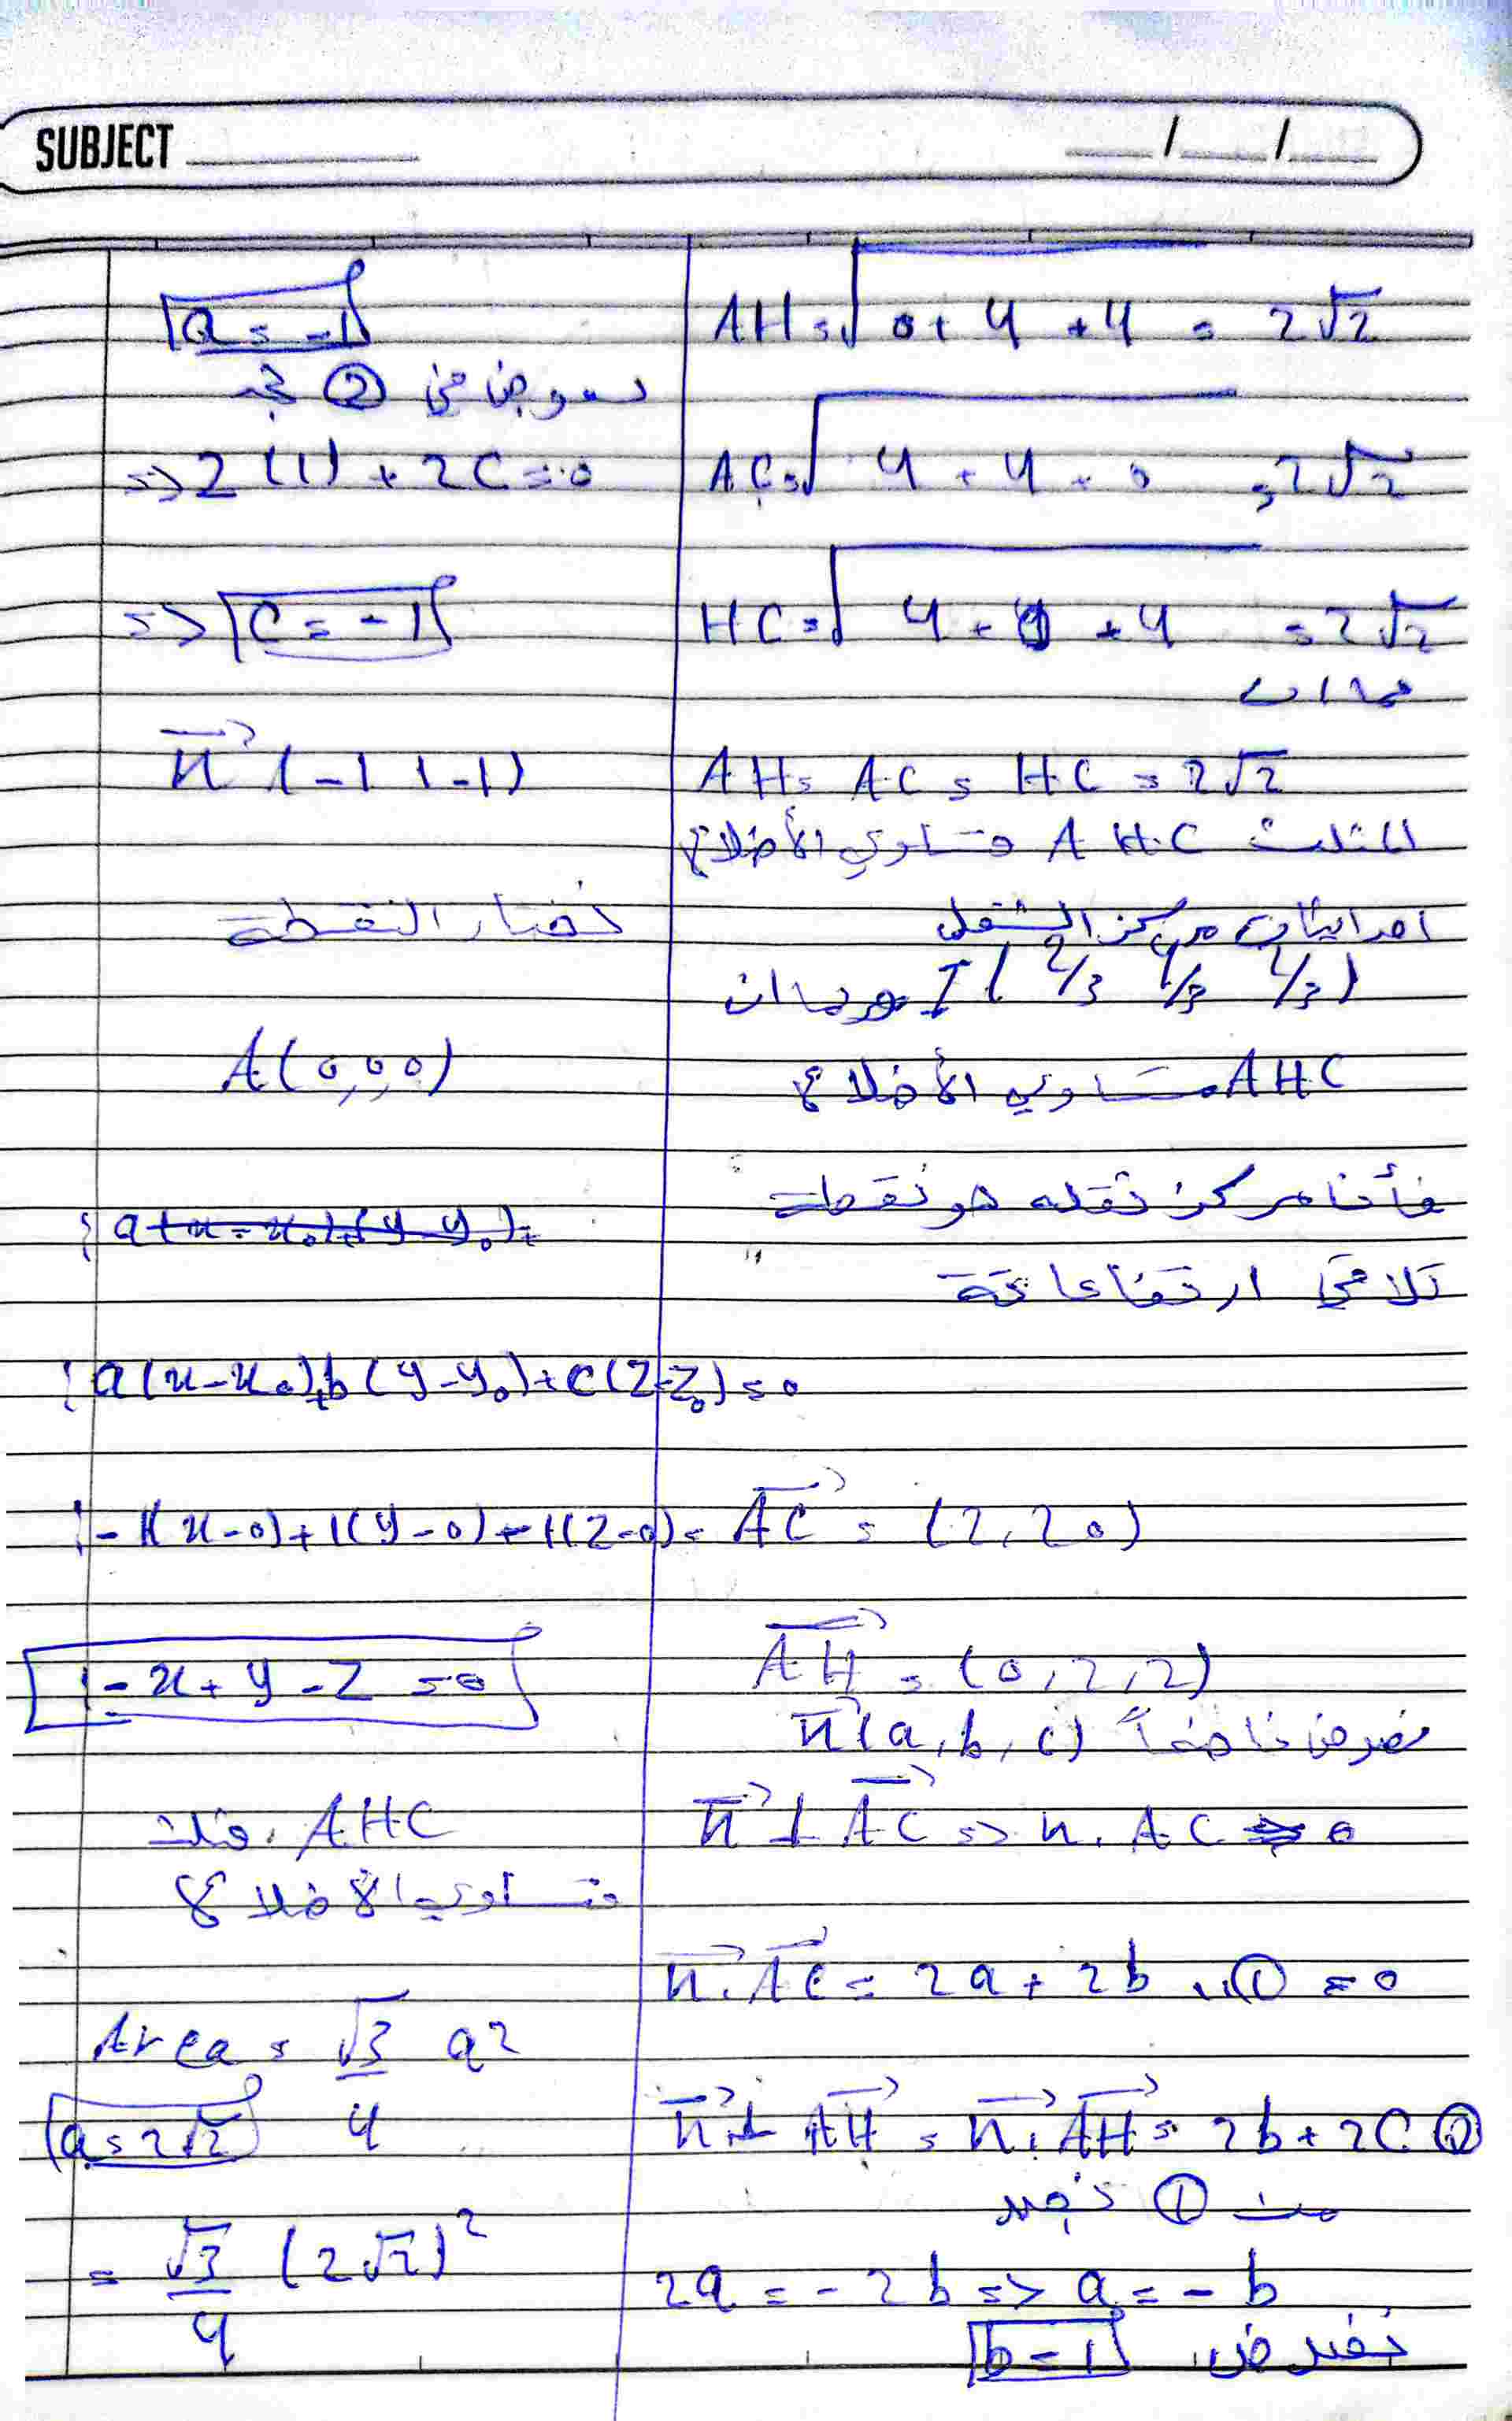 SUBJECT / /
AH = √0 + 4 + 4 = 2√2
AC = √4 + 4 + 0 = 2√2
HC = √4 + 0 + 4 = 2√2
بما ان
AH = AC = HC = 2√2
المثلث AHC متساوي الأضلاع
احداثيات مركز الثقل
I ( 2/3 4/3 2/3 ) وبما ان
AHC متساوي الأضلاع
فأن مركز ثقله هو نقطة
تلاقي ارتفاعاته
AC = (2, 2 0)
AH = (0, 2, 2)
نفرض ناظماً n (a, b, c)
n ⊥ AC => n . AC = 0
n . AC = 2a + 2b ...① = 0
n ⊥ AH = n . AH = 2b + 2C ②
من ① نجد
2a = -2b => a = -b
نفرض b = 1
a = -1
نعوض في ② نجد
=> 2(1) + 2C = 0
=> C = -1
n (-1 1 -1)
نختار النقطة
A(0,0,0)
a(x-x₀)+(y-y₀)+
a(x-x₀)+b(y-y₀)+c(z-z₀)=0
-1(x-0)+1(y-0)-1(z-0)=
-x+y-z=0
AHC مثلث
متساوي الأضلاع
Area = √3/4 a2
a = 2√2
= √3/4 (2√2)²